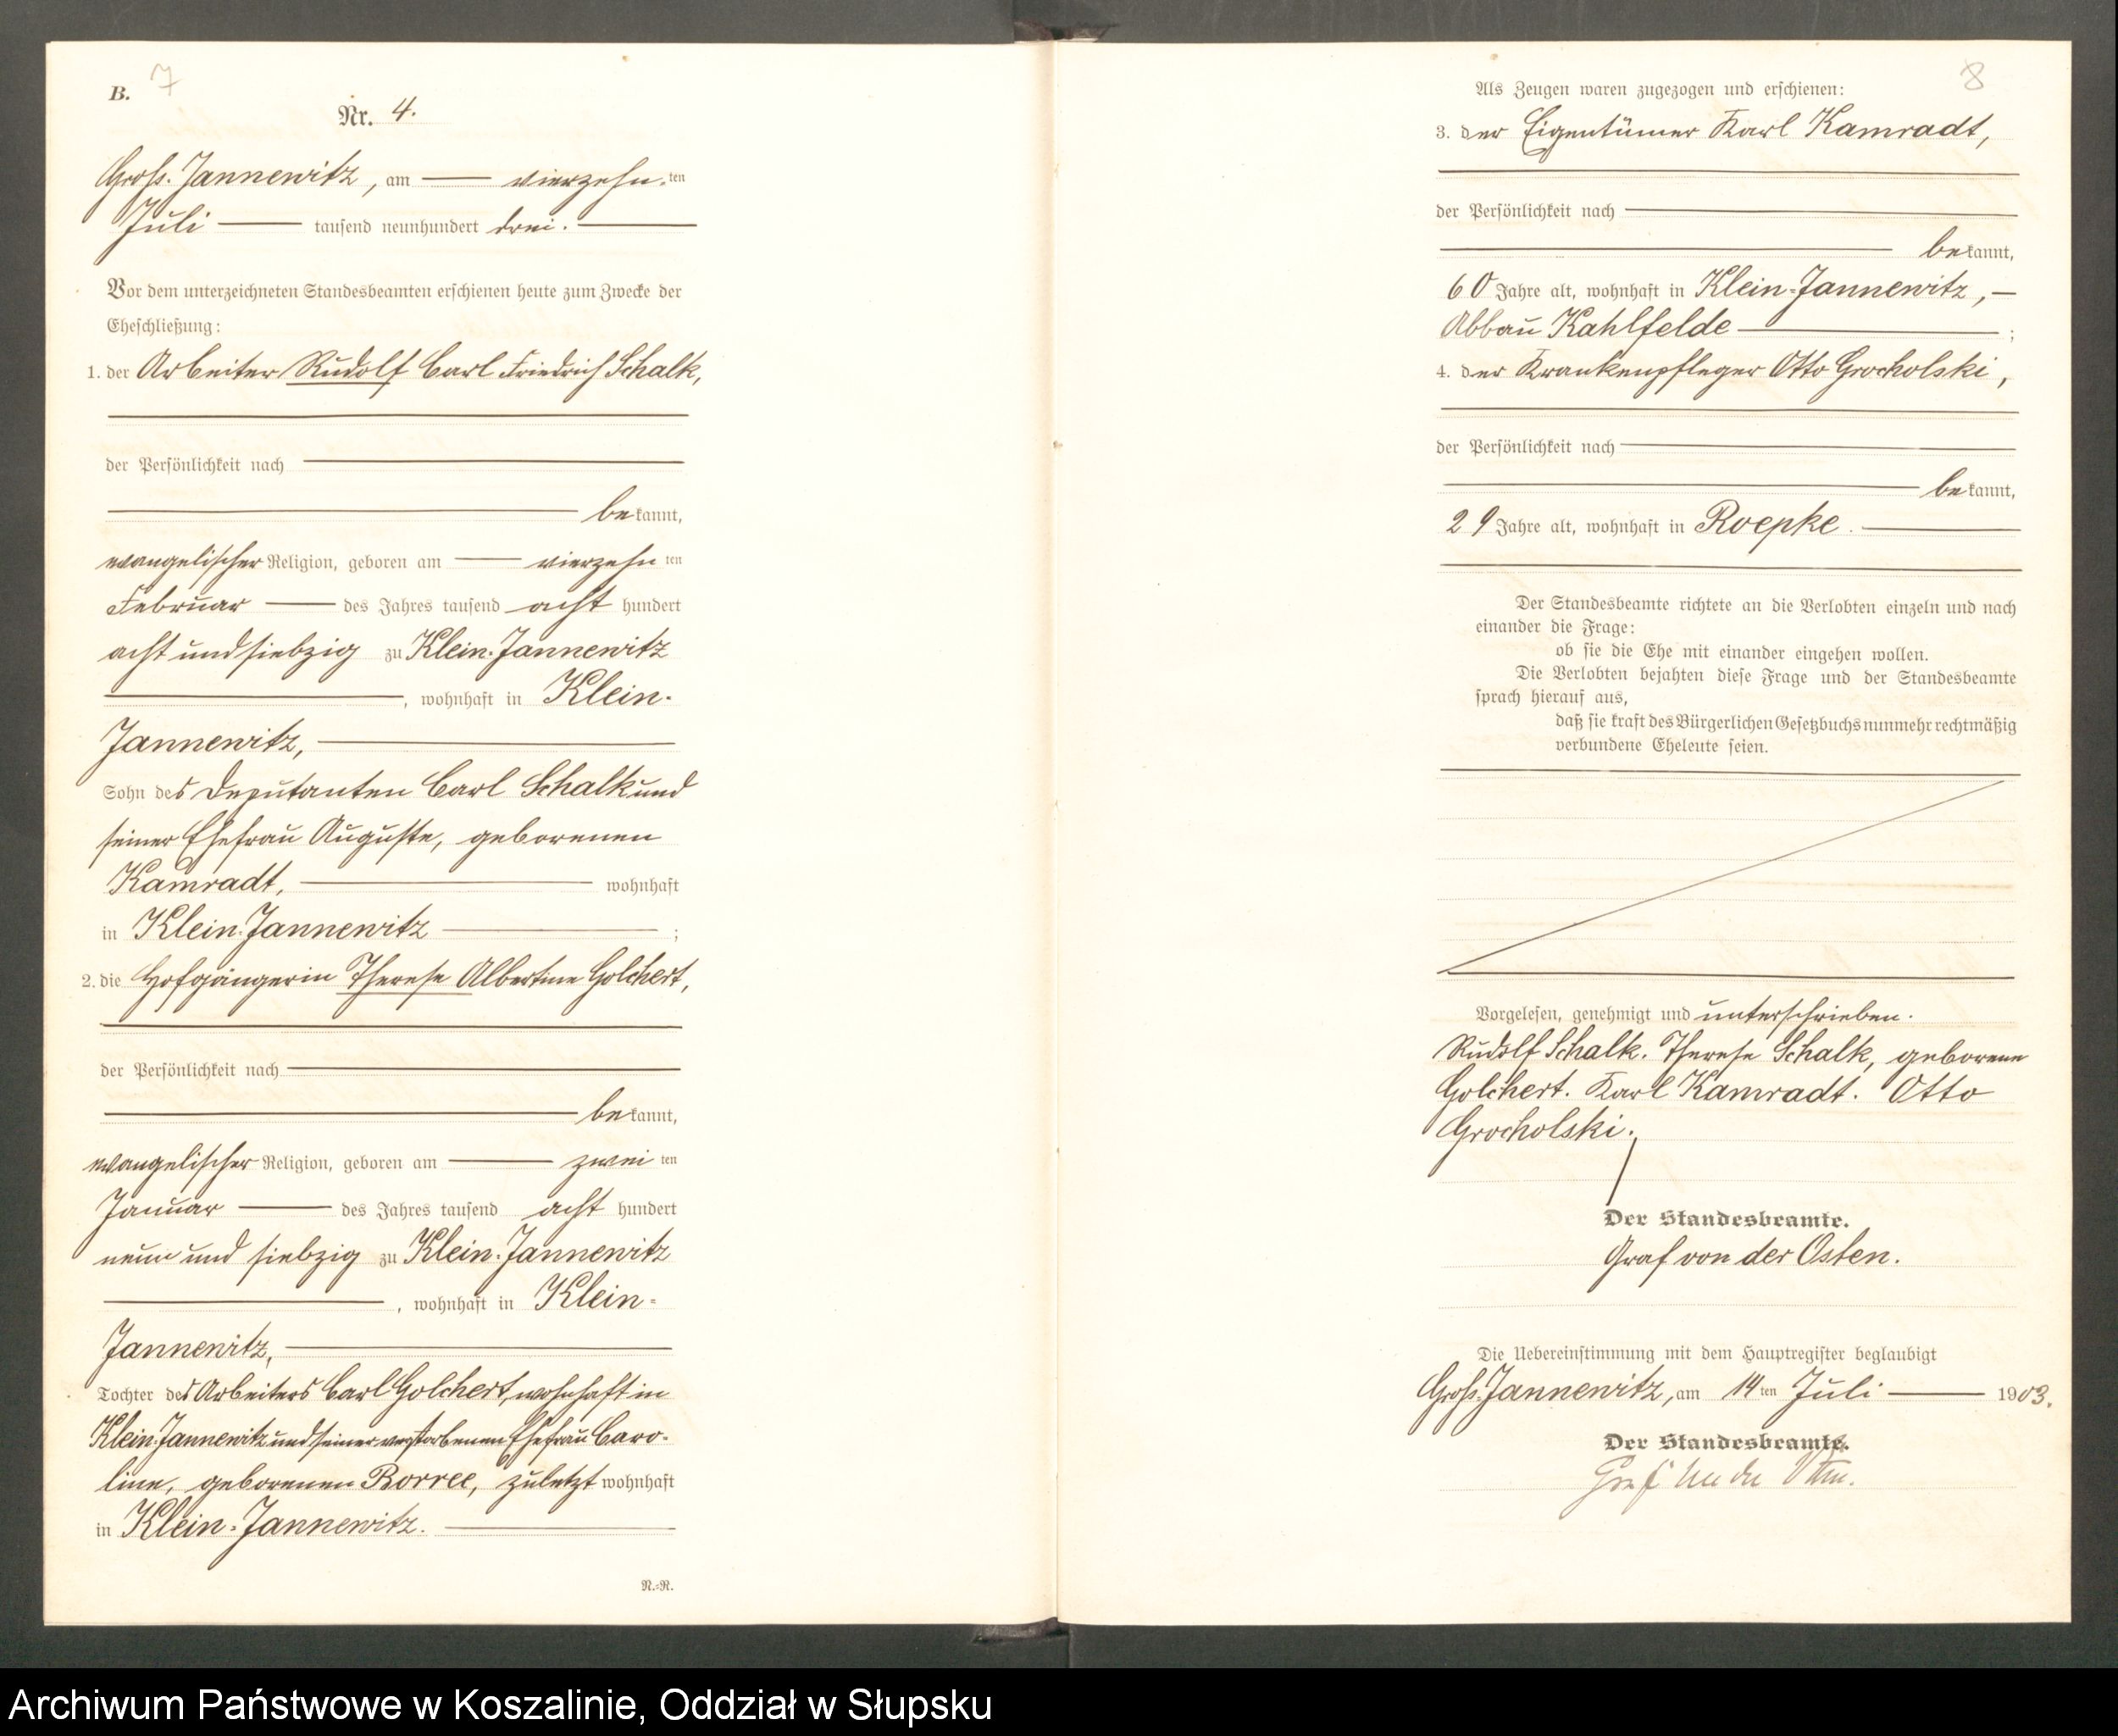 B. 7
Nr. 4.
Groß-Jannewitz, am vierzehnten
Juli tausend neunhundert drei.
Vor dem unterzeichneten Standesbeamten erschienen heute zum Zwecke der
Eheschließung:
1. der Arbeiter Rudolf Carl Friedrich Schalk,
der Persönlichkeit nach
bekannt,
evangelischer Religion, geboren am vierzehnten
Februar des Jahres tausend acht hundert
acht und siebzig zu Klein-Jannewitz
, wohnhaft in Klein-
Jannewitz,
Sohn des Deputanten Carl Schalk und
seiner Ehefrau Auguste, geborenen
Kamradt, wohnhaft
in Klein-Jannewitz ;
2. die Hofgängerin Therese Albertine Golchert,
der Persönlichkeit nach
bekannt,
evangelischer Religion, geboren am zweiten
Januar des Jahres tausend acht hundert
neun und siebzig zu Klein-Jannewitz
, wohnhaft in Klein-
Jannewitz,
Tochter des Arbeiters Carl Golchert, wohnhaft in
Klein-Jannewitz und seiner verstorbenen Ehefrau Caro-
line, geborenen Borree, zuletzt wohnhaft
in Klein-Jannewitz.
N.-N.
8
Als Zeugen waren zugezogen und erschienen:
3. der Eigentümer Karl Kamradt,
der Persönlichkeit nach
bekannt,
60 Jahre alt, wohnhaft in Klein-Jannewitz,
Abbau Kahlfelde ;
4. der Krankenpfleger Otto Grocholski,
der Persönlichkeit nach
bekannt,
29 Jahre alt, wohnhaft in Roepke.
Der Standesbeamte richtete an die Verlobten einzeln und nach
einander die Frage:
ob sie die Ehe mit einander eingehen wollen.
Die Verlobten bejahten diese Frage und der Standesbeamte
sprach hierauf aus,
daß sie kraft des Bürgerlichen Gesetzbuchs nunmehr rechtmäßig
verbundene Eheleute seien.
Vorgelesen, genehmigt und unterschrieben.
Rudolf Schalk. Therese Schalk, geborene
Golchert. Karl Kamradt. Otto
Grocholski.
Der Standesbeamte.
Graf von der Osten.
Die Uebereinstimmung mit dem Hauptregister beglaubigt
Groß-Jannewitz, am 14ten Juli 1903.
Der Standesbeamte.
Graf von der Osten.
Archiwum Państwowe w Koszalinie, Oddział w Słupsku